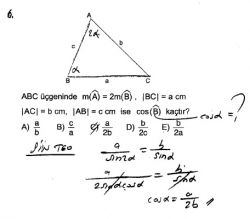 6.
A
2α
c
b
α
B
a
C
ABC üçgeninde m(A) = 2m(B), |BC| = a cm
|AC| = b cm, |AB| = c cm ise cos(B) kaçtır?
cosα = ?
A) a/b B) c/a C) a/2b D) b/2c E) b/2a
SİN TEO
a/sin2α = b/sinα
a/2sinα cosα = b/sinα
cosα = a/2b //